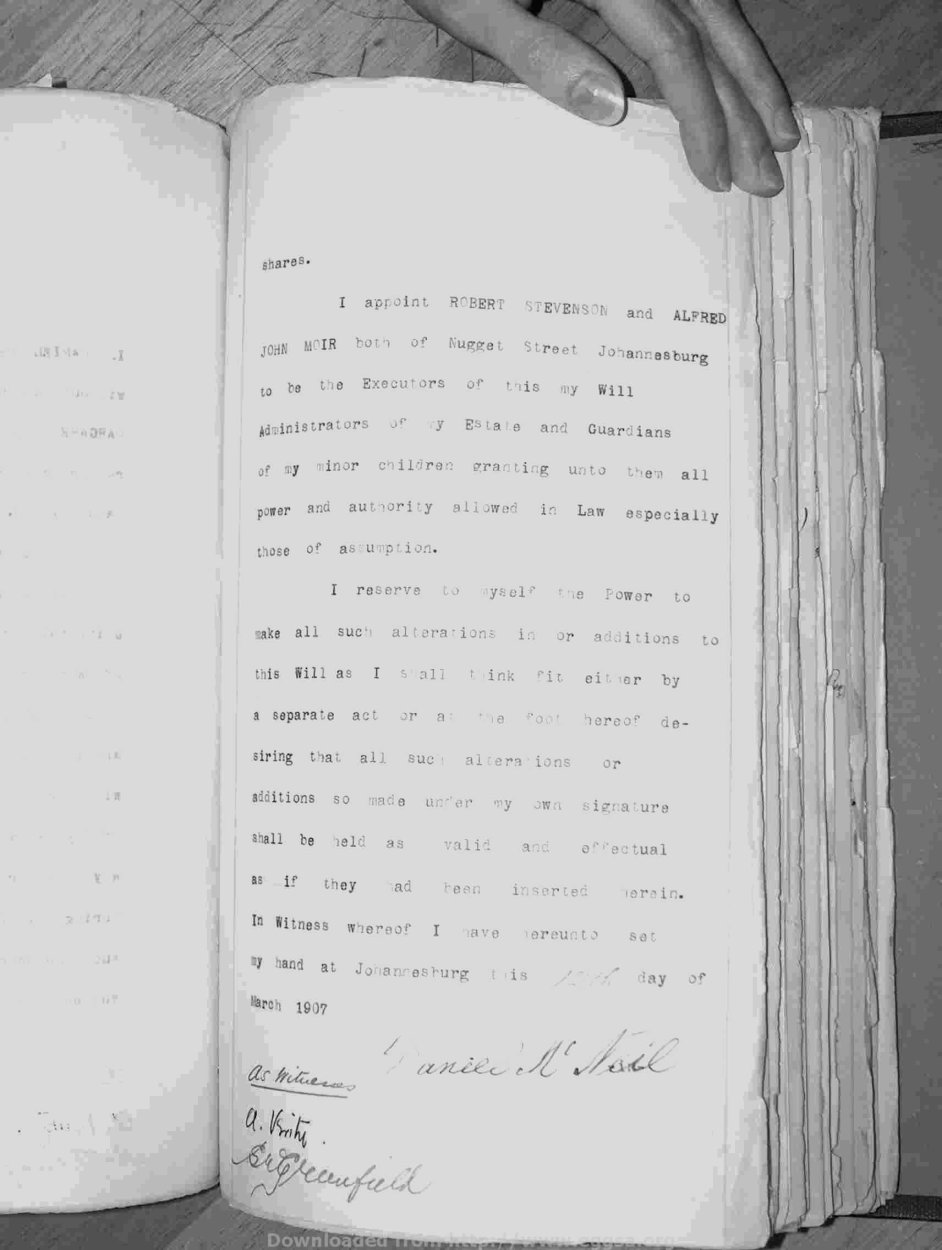 shares.
I appoint ROBERT STEVENSON and ALFRED
JOHN MOIR both of Nugget Street Johannesburg
to be the Executors of this my Will
Administrators of my Estate and Guardians
of my minor children granting unto them all
power and authority allowed in Law especially
those of assumption.
I reserve to myself the Power to
make all such alterations in or additions to
this Will as I shall think fit either by
a separate act or at the foot hereof de-
siring that all such alterations or
additions so made under my own signature
shall be held as valid and effectual
as if they had been inserted herein.
In Witness whereof I have hereunto set
my hand at Johannesburg this day of
March 1907
Daniel McNeil
As Witnesses
A.
Greenfield
Downloaded from http://www.eggsa.org